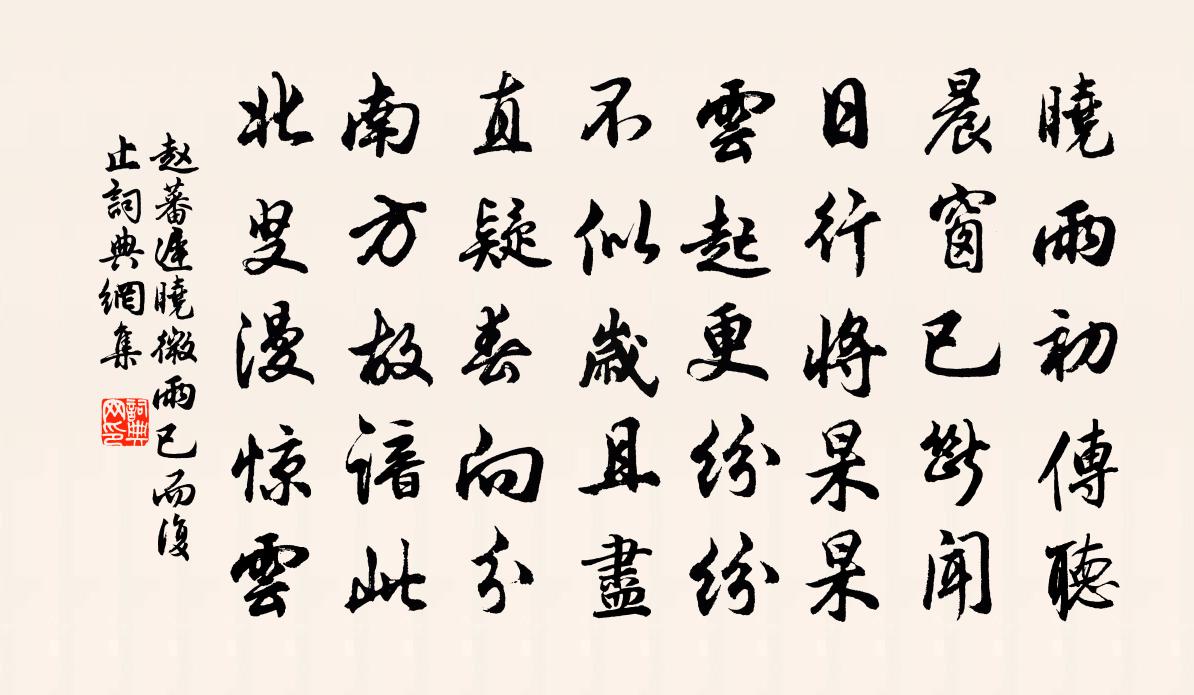 曉雨初傳聽
晨窗已斷聞
日行將杲杲
雲起更紛紛
不似歲且盡
直疑春向分
南方故諳此
北叟漫惊雲
赵蕃遲曉微雨已而復
止詞典網集
詞典
网印